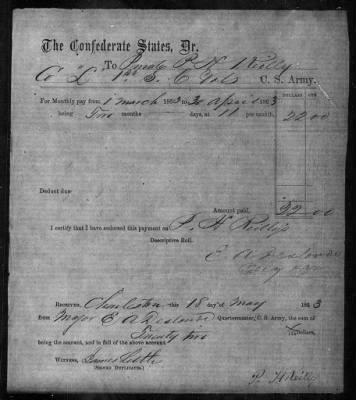 The Confederate States, Dr.
To Private P. H. Reilly
Co L 1st S. C. Vols C. S. Army.
DOLLARS CTS
For Monthly pay from 1 March 1863 to 30 April 1863
being Two months days, at 11 per month, 22 00
Deduct due
Amount paid, 22 00
I certify that I have endorsed this payment on P. H. Reilly's
Descriptive Roll.
E A
Received, Charleston this 18 day of May 1863
from Major E A Quartermaster, C. S. Army, the sum of
Twenty two Dollars,
being the amount, and in full of the above account.
Witness, James
(Signed Duplicates.) P. H Reilly